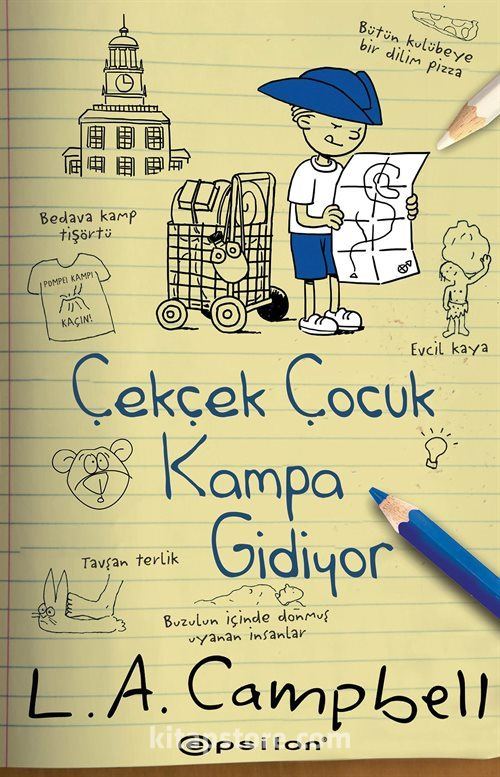 Bütün kulübeye
bir dilim pizza
Bedava kamp
tişörtü
POMPEI KAMPI
KAÇIN!
Evcil kaya
Çekçek Çocuk
Kampa
Gidiyor
Tavşan terlik
Buzulun içinde donmuş
uyanan insanlar
L. A. Campbell
kitapstore.com
epsilon